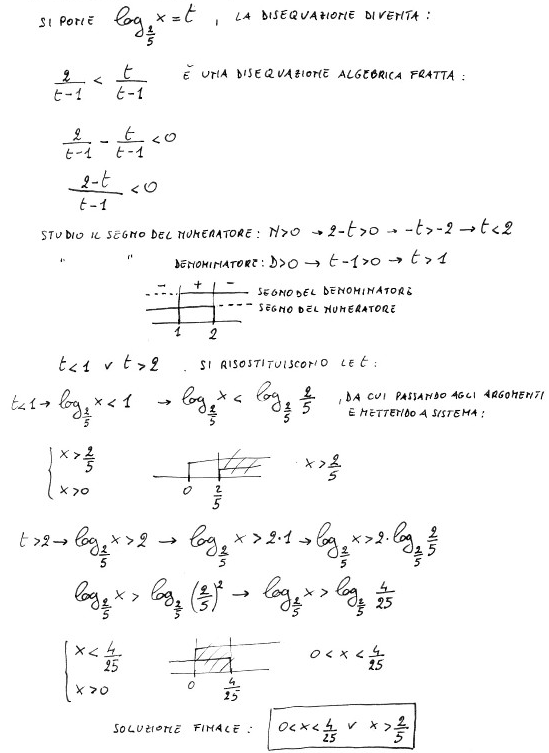 SI PONE log_{2/5} x = t , LA DISEQUAZIONE DIVENTA :
2/(t-1) < t/(t-1) È UNA DISEQUAZIONE ALGEBRICA FRATTA :
2/(t-1) - t/(t-1) < 0
(2-t)/(t-1) < 0
STUDIO IL SEGNO DEL NUMERATORE : N>0 → 2-t>0 → -t>-2 → t<2
" " DENOMINATORE : D>0 → t-1>0 → t>1
- + - SEGNO DEL DENOMINATORE
SEGNO DEL NUMERATORE
1 2
t<1 v t>2 . SI RISOSTITUISCONO LE t :
t<1 → log_{2/5} x < 1 → log_{2/5} x < log_{2/5} 2/5 , DA CUI PASSANDO AGLI ARGOMENTI
E METTENDO A SISTEMA :
{ x > 2/5
x > 0
0 2/5
x > 2/5
t>2 → log_{2/5} x > 2 → log_{2/5} x > 2·1 → log_{2/5} x > 2·log_{2/5} 2/5
log_{2/5} x > log_{2/5} (2/5)² → log_{2/5} x > log_{2/5} 4/25
{ x < 4/25
x > 0
0 4/25
0 < x < 4/25
SOLUZIONE FINALE : 0 < x < 4/25 v x > 2/5